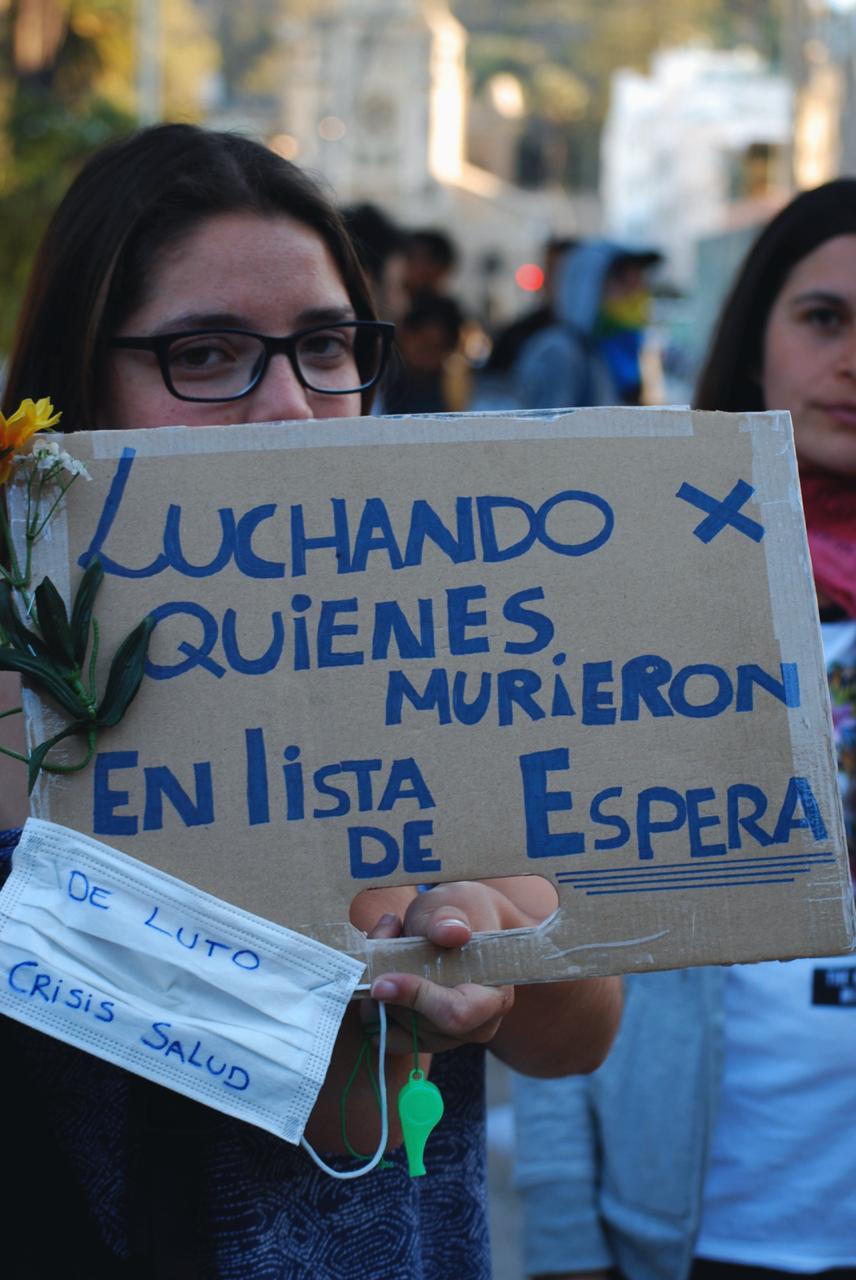 LUCHANDO X
QUIENES
MURIERON
EN lISTA
DE ESPERA
DE LUTO
CRISIS SALUD